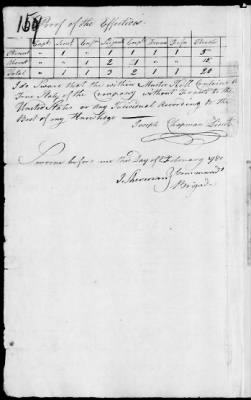 159
Proof of the Effectives
Capt Lieut Ens Serjt Corpl Drum Fife Privts
Present " 1 " 1 1 1 5
Absent " " 1 2 1 " " 15
Total " 1 1 3 2 1 1 20
I do Swear that the within Muster Roll Contains the
True State of the Company without Fraud to the
United States or any Individual According to the
Best of my Knowledge
Joseph Chapman Lieut
Sworne before me this Day of February 1780
I Sherman
Commandt
Brigade